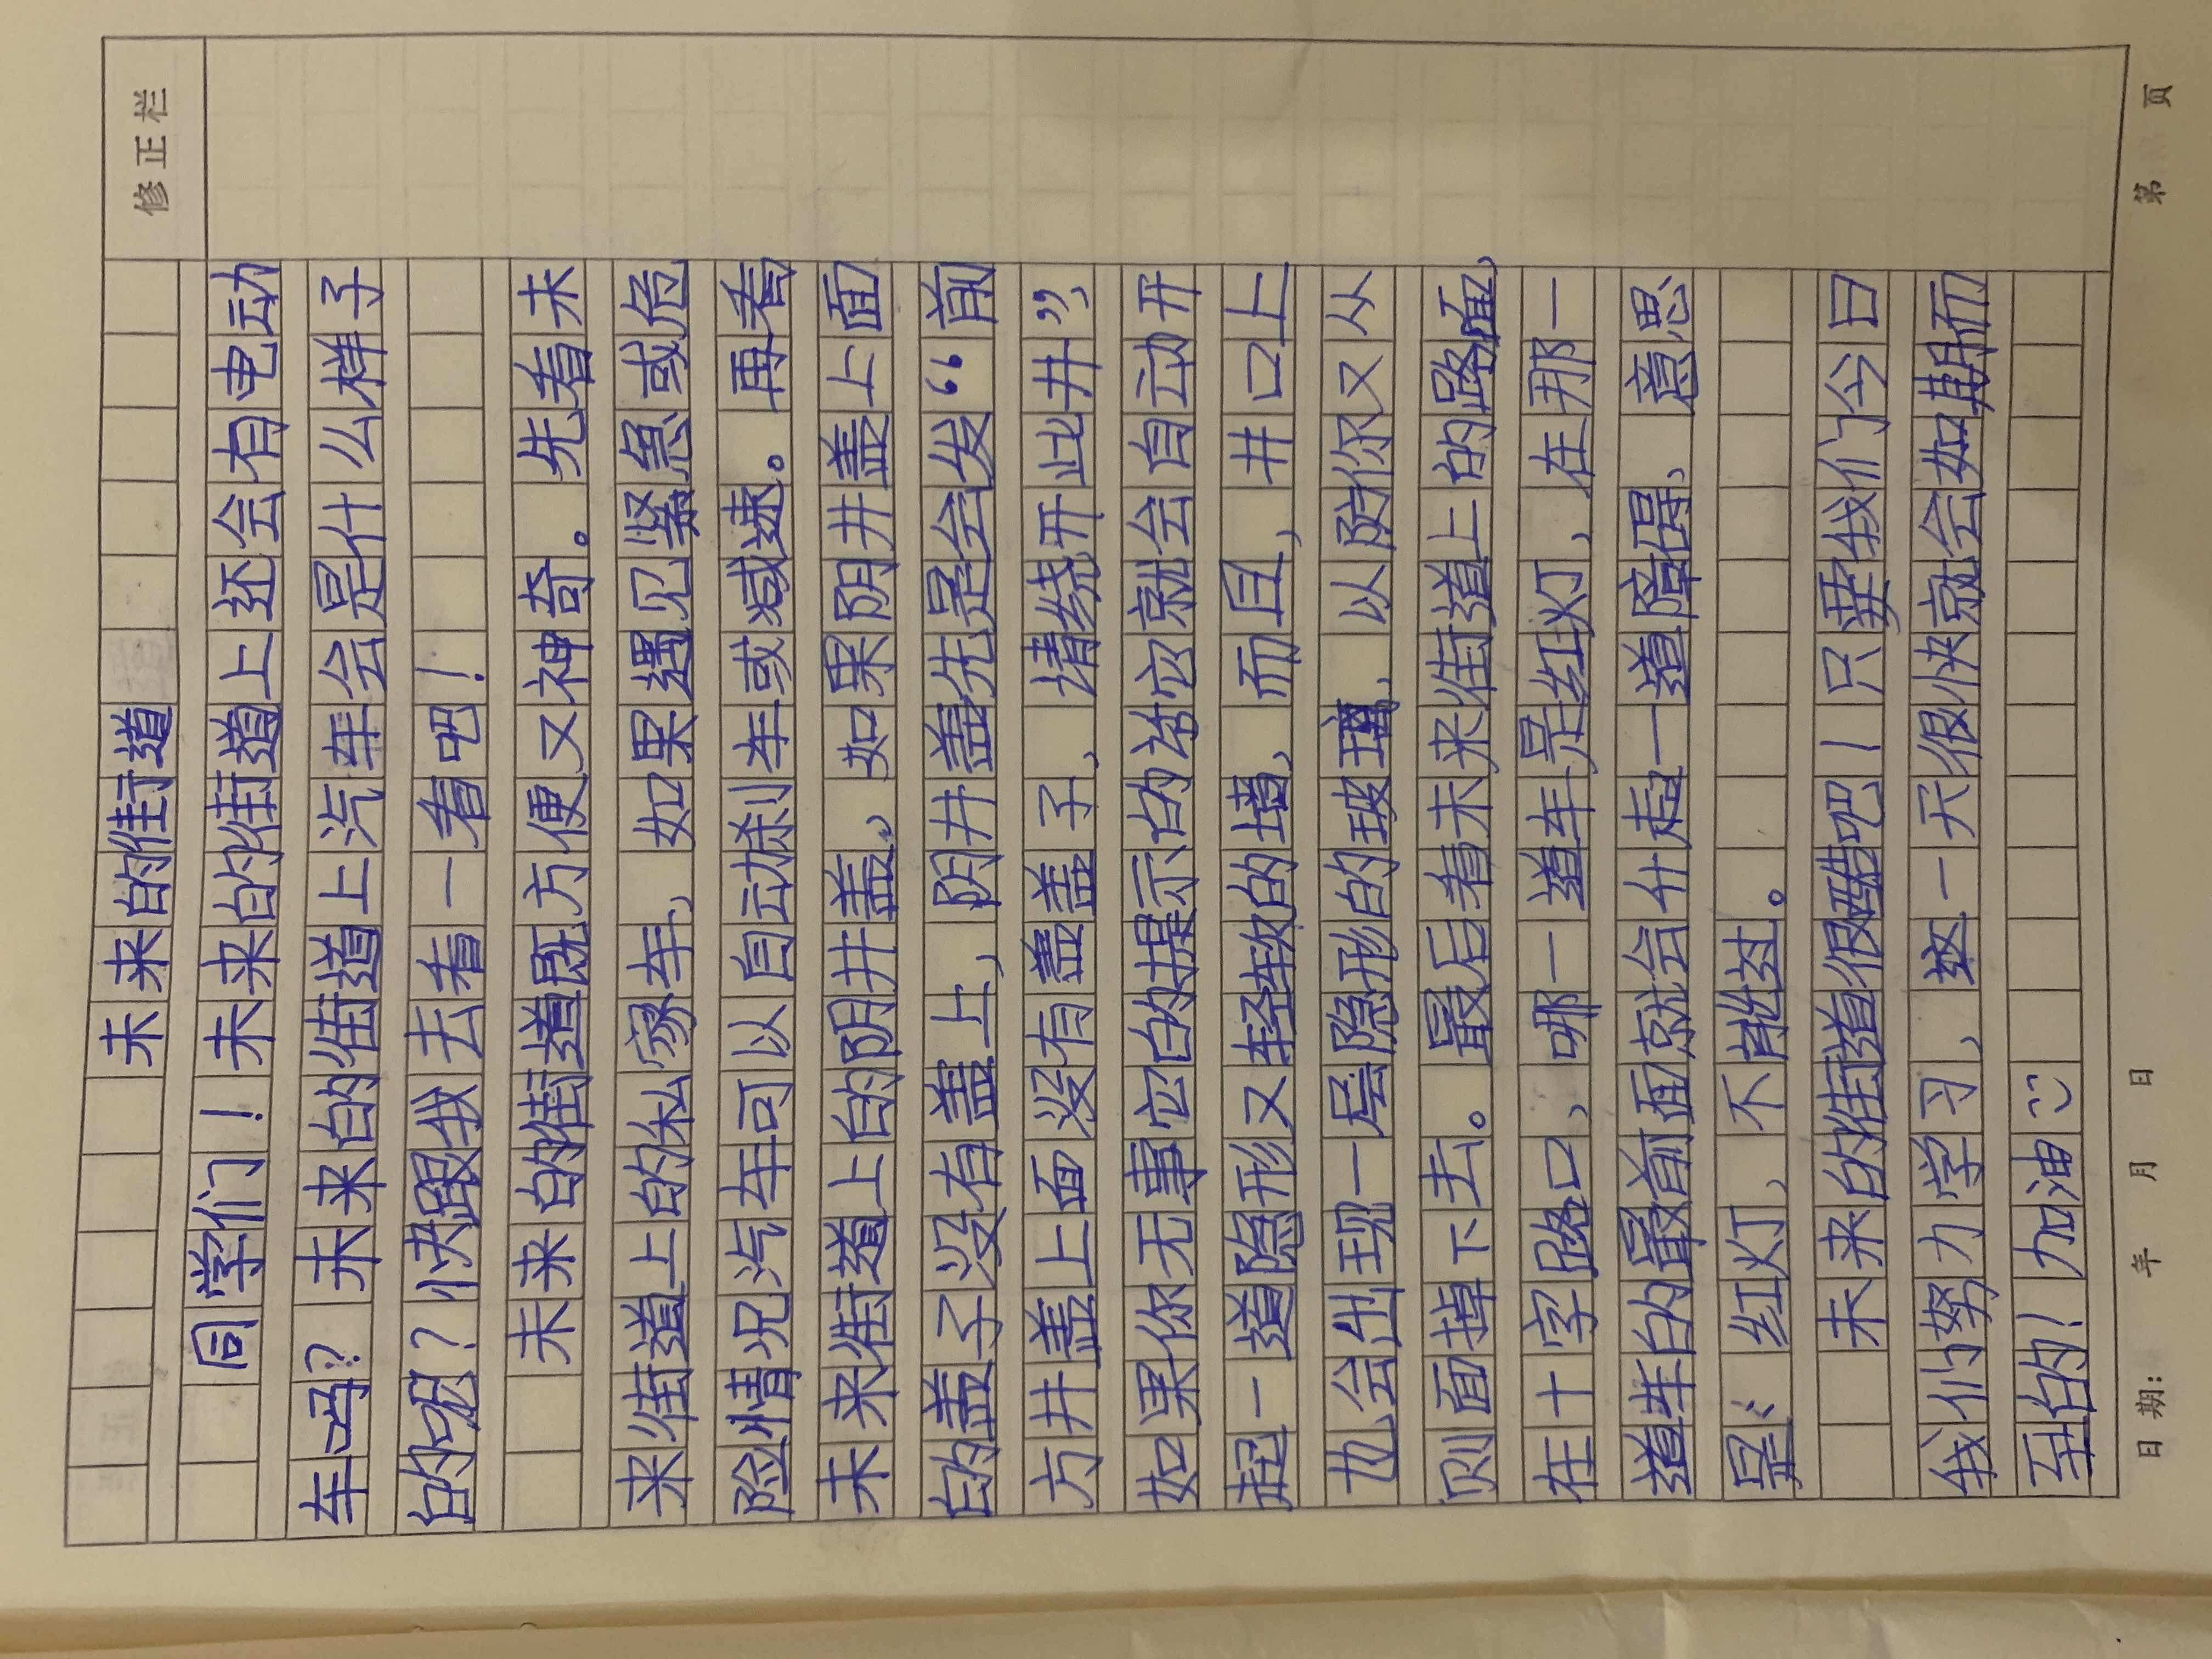 修正栏
未来的街道
同学们！未来的街道上还会有电动
车吗？未来的街道上汽车会是什么样子
的呢？快跟我去看一看吧！
未来的街道既方便又神奇。先看未
来街道上的私家车，如果遇见紧急或危
险情况汽车可以自动刹车或减速。再看
未来街道上的阴井盖。如果阴井盖上面
的盖子没有盖上，阴井盖先是会发“前
方井盖上面没有盖盖子，请绕开此井”，
如果你无事它的提示的话它就会自动开
起一道隐形又轻软的墙，而且，井口上
也会出现一层隐形的玻璃，以防你又从
则面掉下去。最后看未来街道上的路面，
在十字路口，哪一道车是红灯，在那一
道车的最前面就会升起一道障碍，意思
是：红灯，不能过。
未来的街道很酷吧！只要我们今日
我们努力学习，这一天很快就会如期而
至的！加油
日期： 年 月 日 第 页